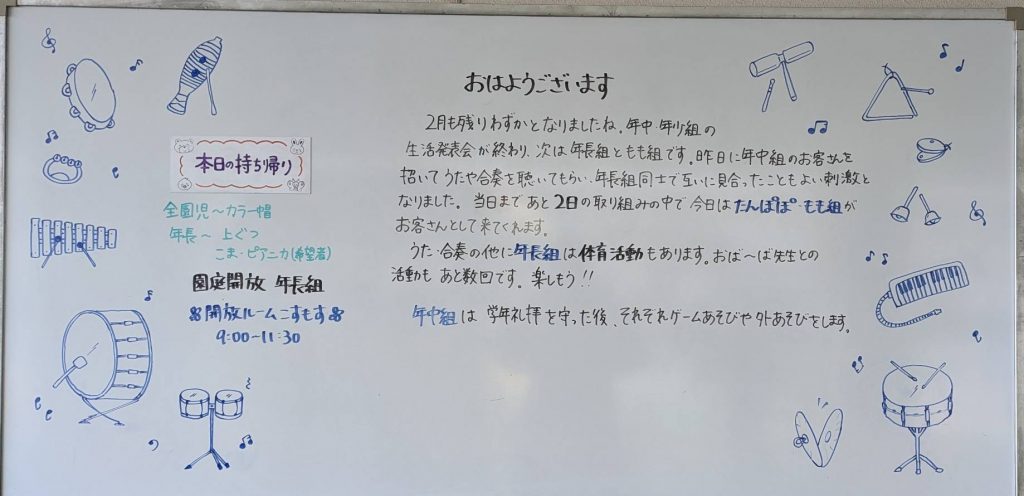 本日の持ち帰り
全園児～カラー帽
年長～ 上ぐつ
こま・ピアニカ(希望者)
園庭開放 年長組
開放ルームこすもす
9:00～11:30
おはようございます
2月も残りわずかとなりましたね。年中・年少組の
生活発表会が終わり、次は年長組ともも組です。昨日に年中組のお客さんを
招いてうたや合奏を聴いてもらい、年長組同士で互いに見合ったこともよい刺激と
なりました。当日まであと2日の取り組みの中で今日はたんぽぽ・もも組が
お客さんとして来てくれます。
うた・合奏の他に年長組は体育活動もあります。おば～ば先生との
活動も あと数回です。楽しもう!!
年中組は 学年礼拝を守った後、それぞれゲームあそびや外あそびをします。